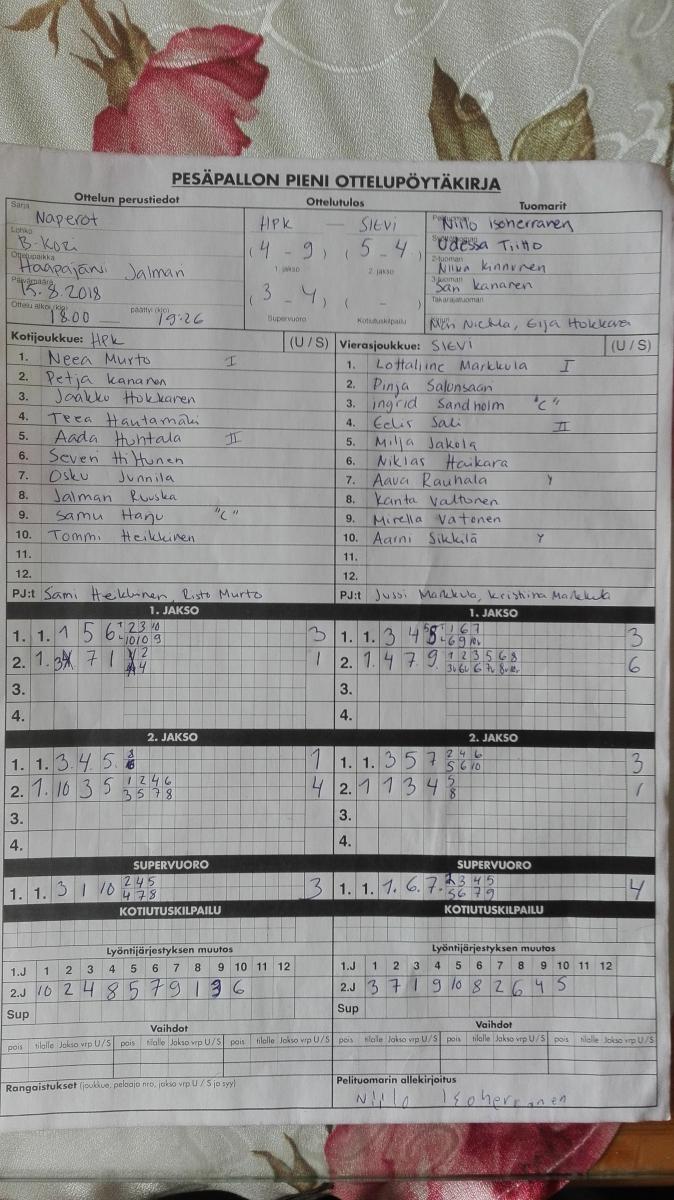 PESÄPALLON PIENI OTTELUPÖYTÄKIRJA
Ottelun perustiedot Ottelutulos Tuomarit
Sarja Naperot
Lohko
Ottelupaikka Haapajärvi Jalman
Päivämäärä 15.8.2018
Ottelu alkoi (klo) 18.00 päättyi (klo) 19:26
HPK — SIEVI
(4 - 9) (5 - 4)
1. jakso 2. jakso
(3 - 4) ( - )
Supervuoro Kotiutuskilpailu
Niilo Isoherranen
Odessa Tiitto
2-tuomari Niina Kinnunen
3-tuomari Kananen
Takarajatuomari
Eija Hokkara
Kotijoukkue: HPK (U / S)
1. Neea Murto I
2. Petja Kananen
3. Jaakko Hokkaren
4. Teea Hautamäki
5. Aada Huhtala II
6. Severi Hiltunen
7. Osku Junnila
8. Jalman Ruuska
9. Samu Harju "C"
10. Tommi Heikkinen
11.
12.
PJ:t Sami Heikkinen, Risto Murto
Vierasjoukkue: SIEVI (U / S)
1. Lottaliine Markkula I
2. Pinja Salonsaari
3. ingrid Sandholm "C"
4. Eelis Sali II
5. Milja Jakola
6. Niklas Haikara
7. Aava Rauhala Y
8. Kanta Valtonen
9. Mirella Vatonen
10. Aarni Sikkilä Y
11.
12.
PJ:t Jussi Markkula, Kristiina Markkula
1. JAKSO 1. JAKSO
1. 1. 1 5 6 3
2. 1. 7 1 1
3.
4.
1. 1. 3 4 3
2. 1. 4 7 9 6
3.
4.
2. JAKSO 2. JAKSO
1. 1. 3. 4. 5. 1
2. 1. 10 3 5 1 2 4 6 4
3 5 7 8
3.
4.
1. 1. 3 5 7 2 4 6 3
5 6 10
2. 1 1 3 4 5 1
8
3.
4.
SUPERVUORO SUPERVUORO
1. 1. 3 1 10 2 4 5 3
4 7 8
1. 1. 1. 6. 7. 2 3 4 5 4
5 6 7 9
KOTIUTUSKILPAILU KOTIUTUSKILPAILU
Lyöntijärjestyksen muutos
1.J 1 2 3 4 5 6 7 8 9 10 11 12
2.J 10 2 4 8 5 7 9 1 3 6
Sup
Lyöntijärjestyksen muutos
1.J 1 2 3 4 5 6 7 8 9 10 11 12
2.J 3 7 1 9 10 8 2 6 4 5
Sup
Vaihdot Vaihdot
pois tilalle Jakso vrp U / S pois tilalle Jakso vrp U / S pois tilalle Jakso vrp U / S
pois tilalle Jakso vrp U / S pois tilalle Jakso vrp U / S pois tilalle Jakso vrp U / S
Rangaistukset (joukkue, pelaaja nro, jakso vrp U / S ja syy)
Pelituomarin allekirjoitus
Niilo Isoherranen